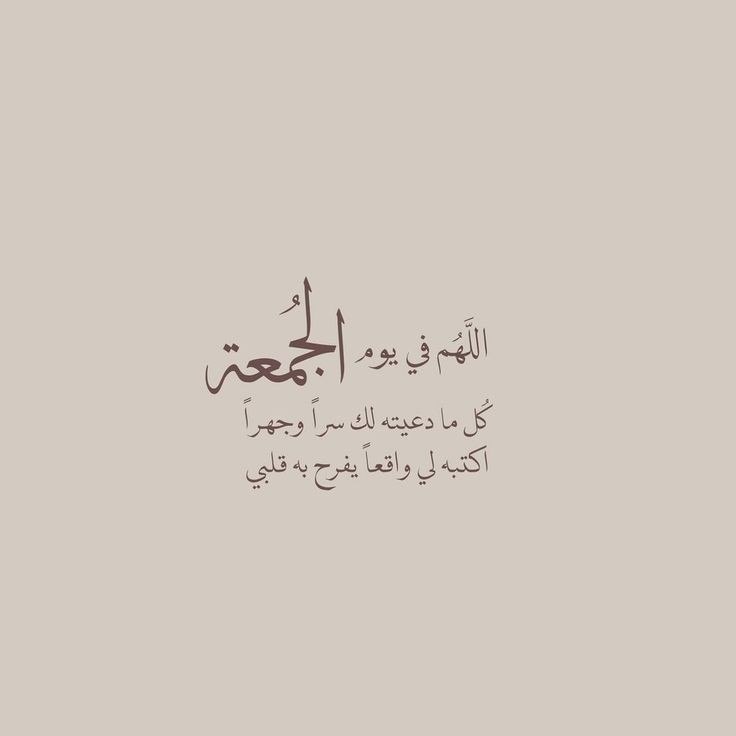 اللَّهُم في يوم الجُمعة
كُل ما دعيته لك سراً وجهراً
اكتبه لي واقعاً يفرح به قلبي